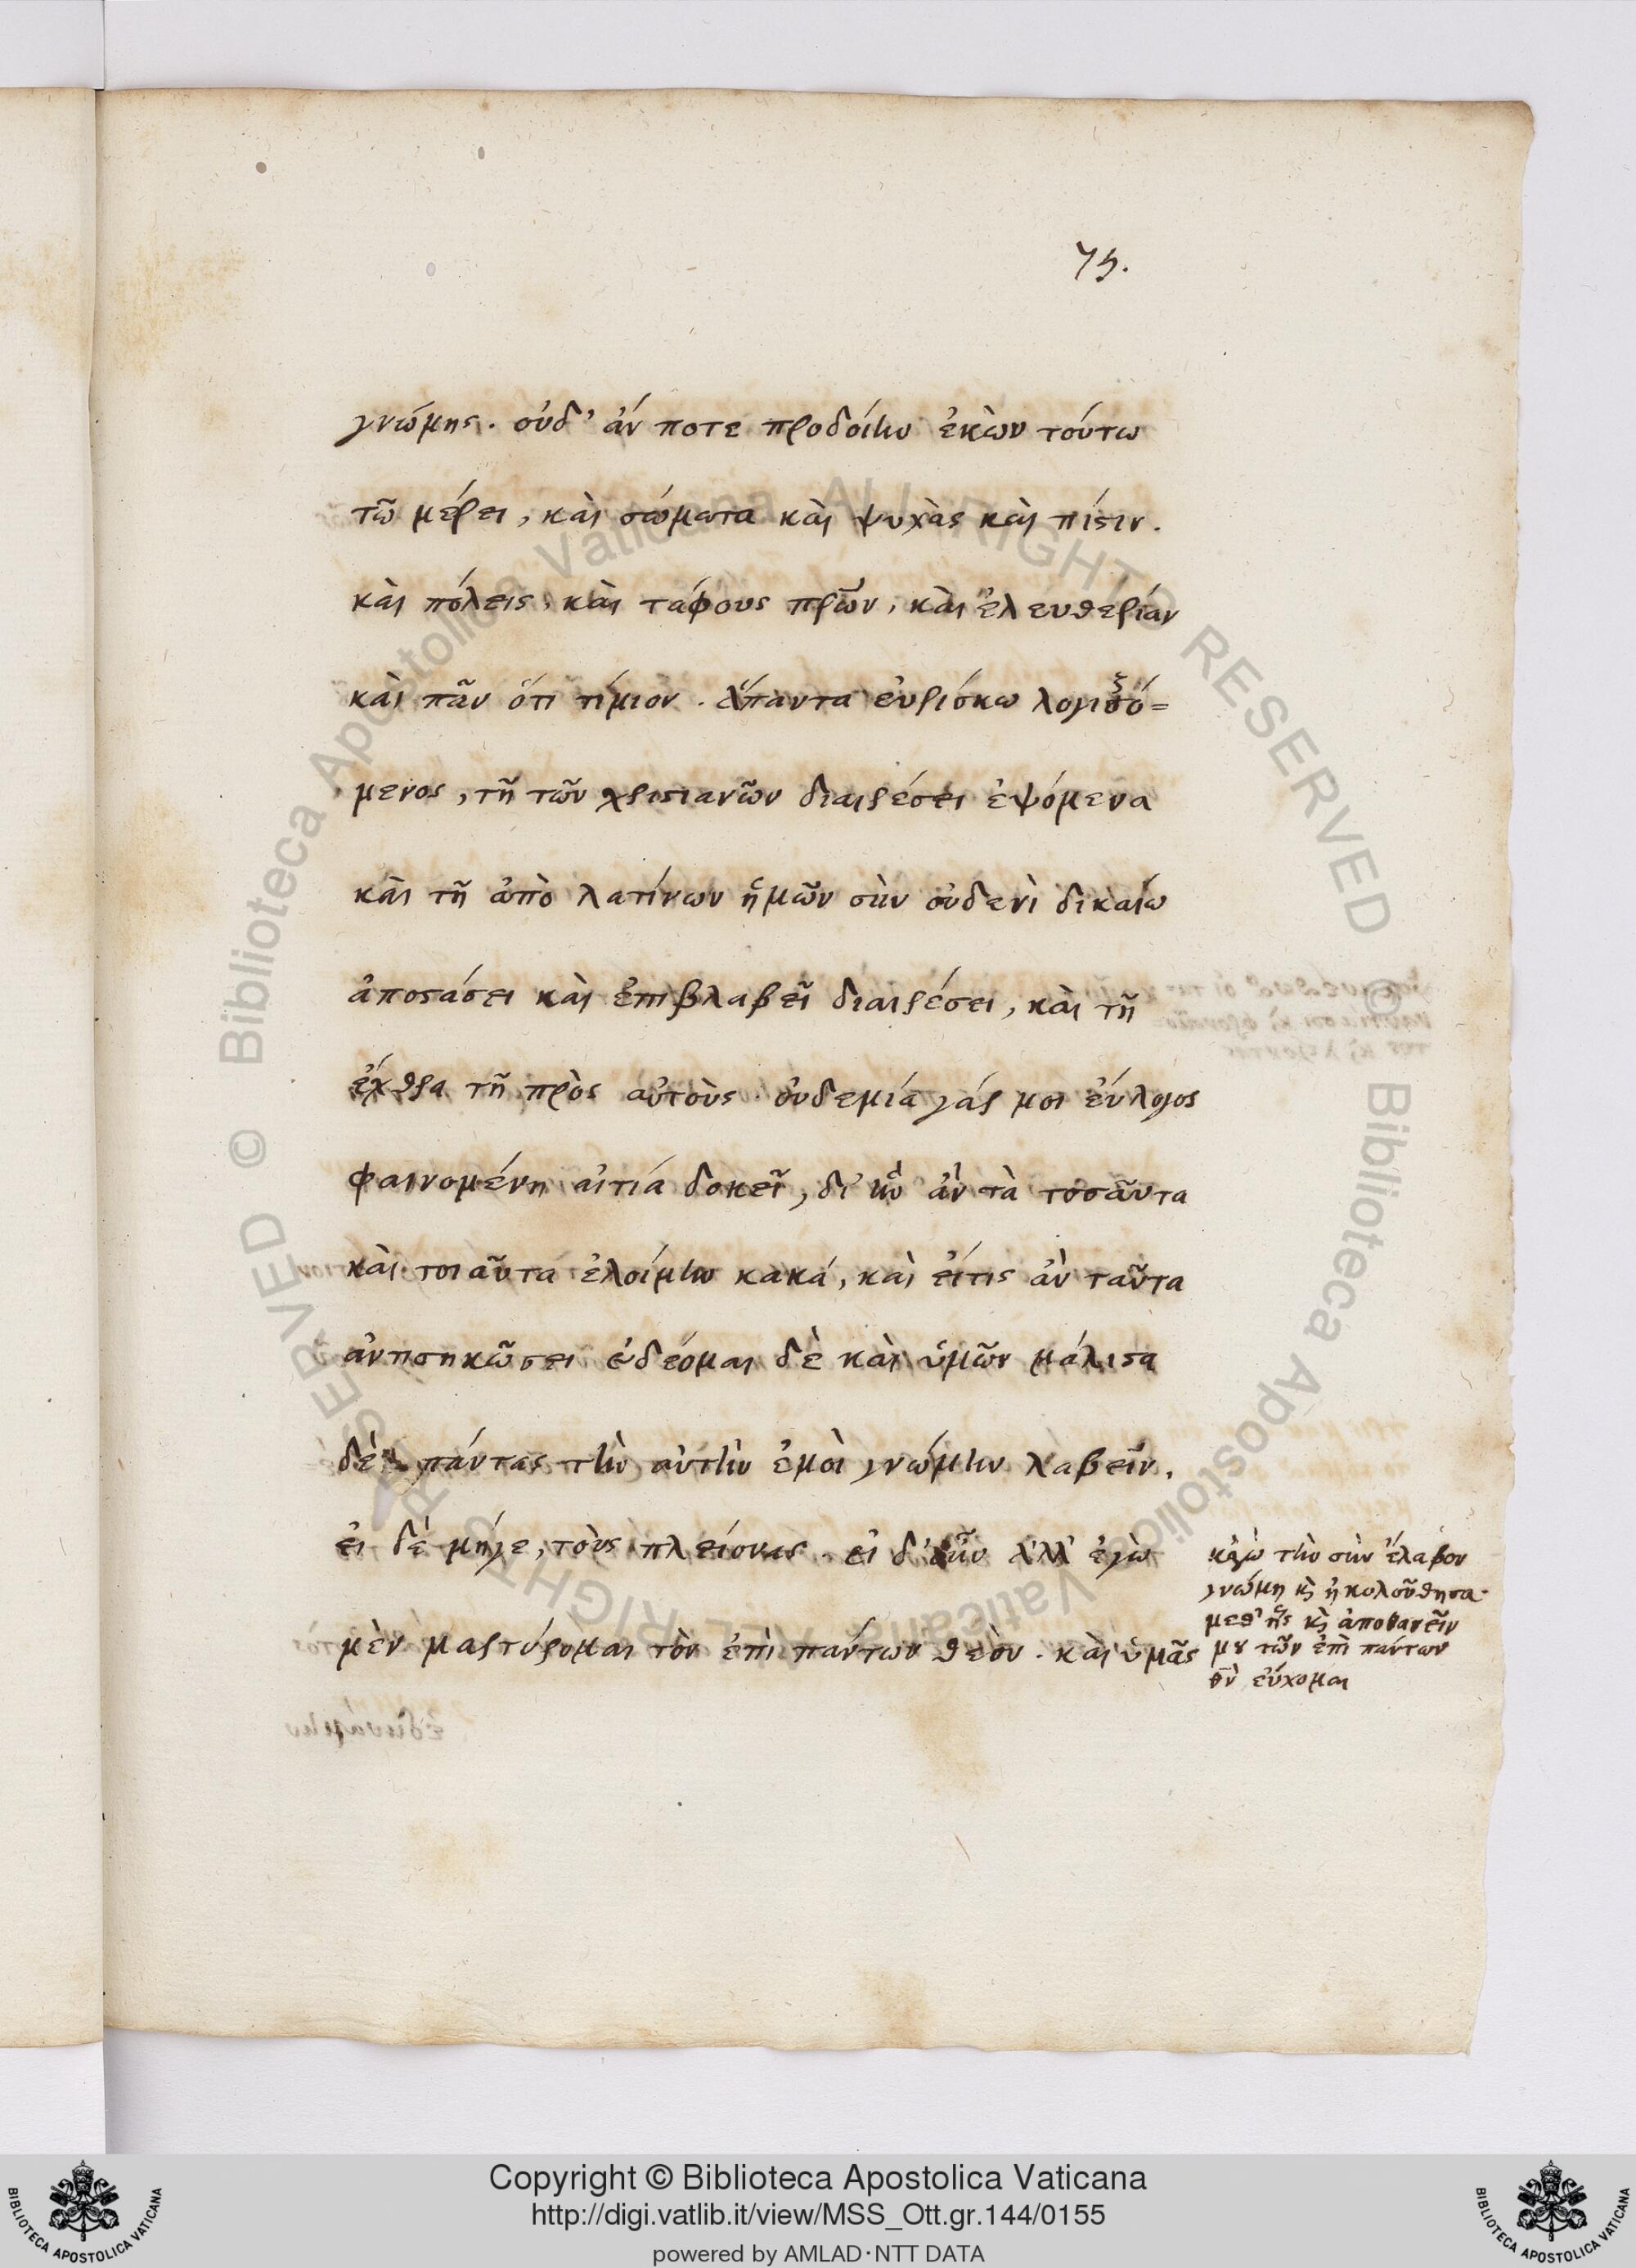 75.
γνώμης. οὐδ' ἄν ποτε προδοίην ἑκὼν τούτω
τῶ μέρει, καὶ σώματα καὶ ψυχὰς καὶ πίστιν.
καὶ πόλεις, καὶ τάφους πρῶν, καὶ ἐλευθερίαν
καὶ πᾶν ὅτι τίμιον. ἅπαντα εὑρίσκω λογιζό=
μενος, τῆ τῶν χριστιανῶν διαιρέσει ἑψόμενα
καὶ τῆ ἀπὸ λατίνων ἡμῶν σὺν οὐδενὶ δικαίω
ἀποστάσει καὶ ἐπιβλαβεῖ διαιρέσει, καὶ τῆ
ἔχθρα τῆ πρὸς αὐτοὺς. οὐδεμία γάρ μοι εὔλογος
φαινομένη αἰτία δοκεῖ, δι' ἣν ἂν τὰ τοσαῦτα
καὶ τοιαῦτα ἑλοίμην κακά, καὶ εἴτις ἂν ταῦτα
ἀντισηκῶσει ἐδεόμαι δὲ καὶ ὑμῶν μάλιστα
δὲ πάντας τὴν αὐτὴν ἐμοὶ γνώμην λαβεῖν.
εἰ δὲ μήγε, τοὺς πλείονας. εἰ δ' οὖν ἀλλ' ἐγὼ
μὲν μαρτύρομαι τὸν ἐπὶ πάντων θεὸν. καὶ ὑμᾶς
κἀγὼ τὴν σὺν ἔλαβον
γνώμη κὶ ἠκολοῦθησα.
μεθ' ἧς κὶ ἀποθανεῖν
μου τῶν ἐπὶ πάντων
θν̀ εὔχομαι
Copyright © Biblioteca Apostolica Vaticana
http://digi.vatlib.it/view/MSS_Ott.gr.144/0155
powered by AMLAD·NTT DATA
BIBLIOTECA APOSTOLICA VATICANA
BIBLIOTECA APOSTOLICA VATICANA
© Biblioteca Apostolica Vaticana ALL RIGHTS RESERVED
© Biblioteca Apostolica Vaticana ALL RIGHTS RESERVED